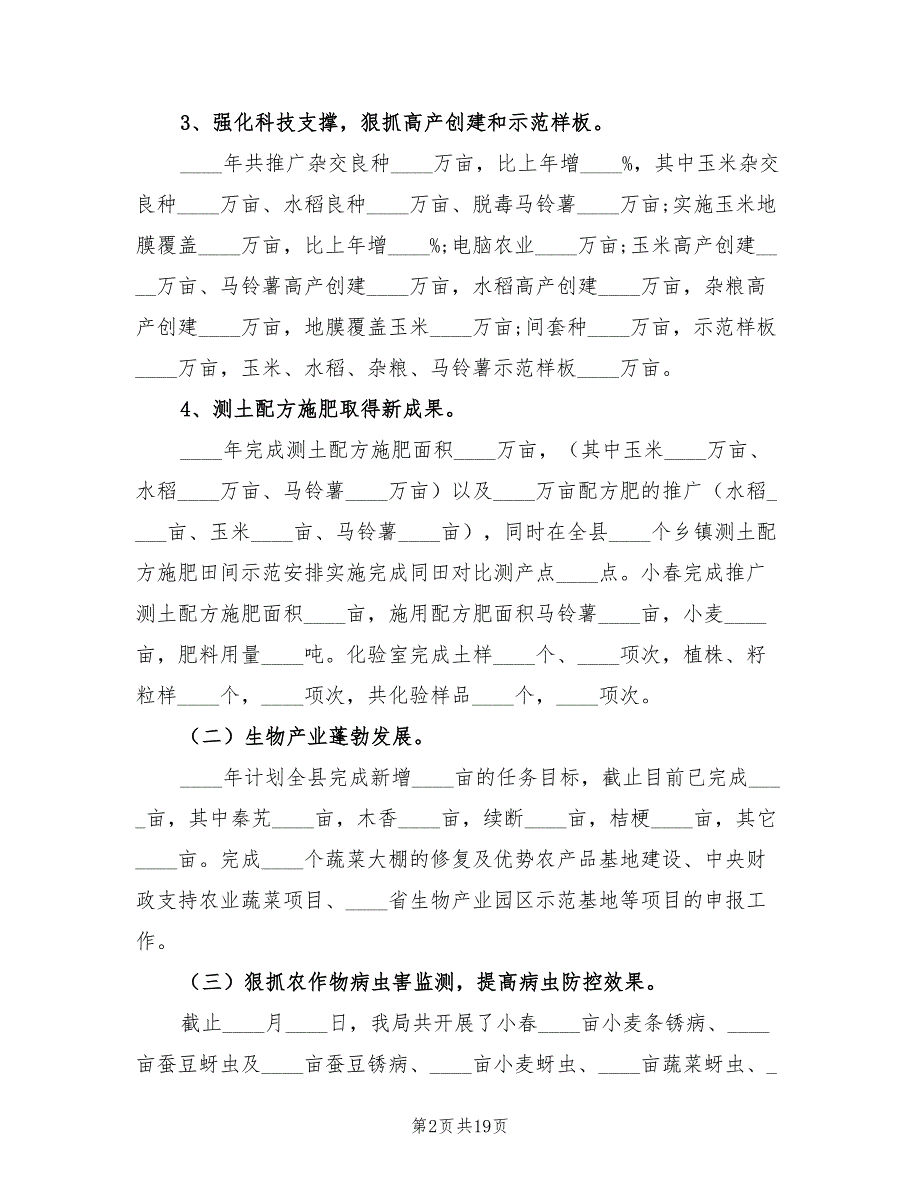 3、强化科技支撑，狠抓高产创建和示范样板。
____年共推广杂交良种____万亩，比上年增____%，其中玉米杂交
良种____万亩、水稻良种____万亩、脱毒马铃薯____万亩;实施玉米地
膜覆盖____万亩，比上年增____%;电脑农业____万亩;玉米高产创建__
__万亩、马铃薯高产创建____万亩，水稻高产创建____万亩，杂粮高
产创建____万亩，地膜覆盖玉米____万亩;间套种____万亩，示范样板
____万亩，玉米、水稻、杂粮、马铃薯示范样板____万亩。
4、测土配方施肥取得新成果。
____年完成测土配方施肥面积____万亩，（其中玉米____万亩、
水稻____万亩、马铃薯____万亩）以及____万亩配方肥的推广（水稻_
___亩、玉米____亩、马铃薯____亩），同时在全县____个乡镇测土配
方施肥田间示范安排实施完成同田对比测产点____点。小春完成推广
测土配方施肥面积____亩，施用配方肥面积马铃薯____亩，小麦____
亩，肥料用量____吨。化验室完成土样____个、____项次，植株、籽
粒样____个，____项次，共化验样品____个，____项次。
（二）生物产业蓬勃发展。
____年计划全县完成新增____亩的任务目标，截止目前已完成___
_亩，其中秦艽____亩，木香____亩，续断____亩，桔梗____亩，其它
____亩。完成____个蔬菜大棚的修复及优势农产品基地建设、中央财
政支持农业蔬菜项目、____省生物产业园区示范基地等项目的申报工
作。
（三）狠抓农作物病虫害监测，提高病虫防控效果。
截止____月____日，我局共开展了小春____亩小麦条锈病、____
亩蚕豆蚜虫及____亩蚕豆锈病、____亩小麦蚜虫、____亩蔬菜蚜虫、_
第2页共19页